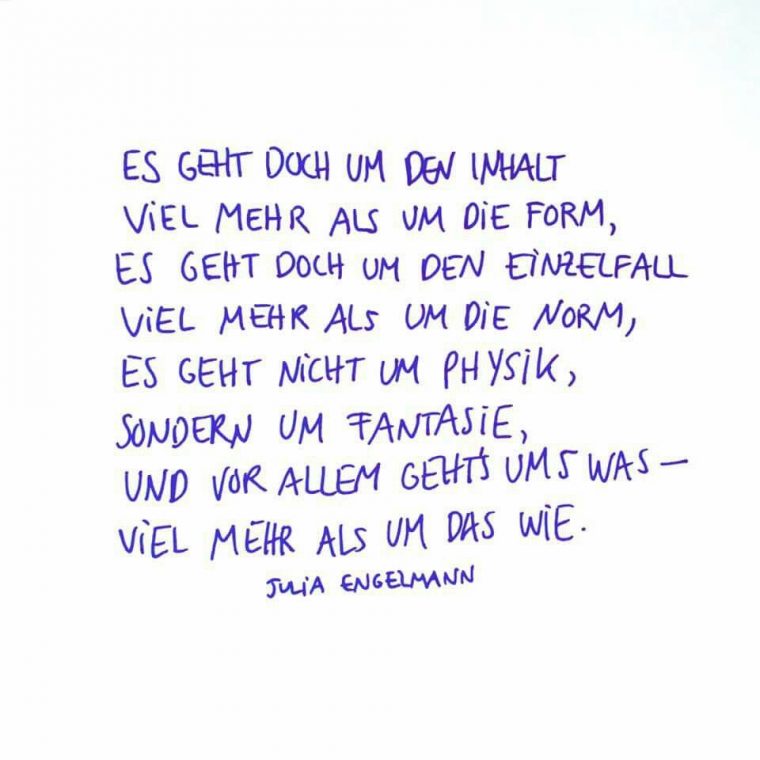 ES GEHT DOCH UM DEN INHALT
VIEL MEHR ALS UM DIE FORM,
ES GEHT DOCH UM DEN EINZELFALL
VIEL MEHR ALS UM DIE NORM,
ES GEHT NICHT UM PHYSIK,
SONDERN UM FANTASIE,
UND VOR ALLEM GEHT'S UMS WAS –
VIEL MEHR ALS UM DAS WIE.
JULIA ENGELMANN